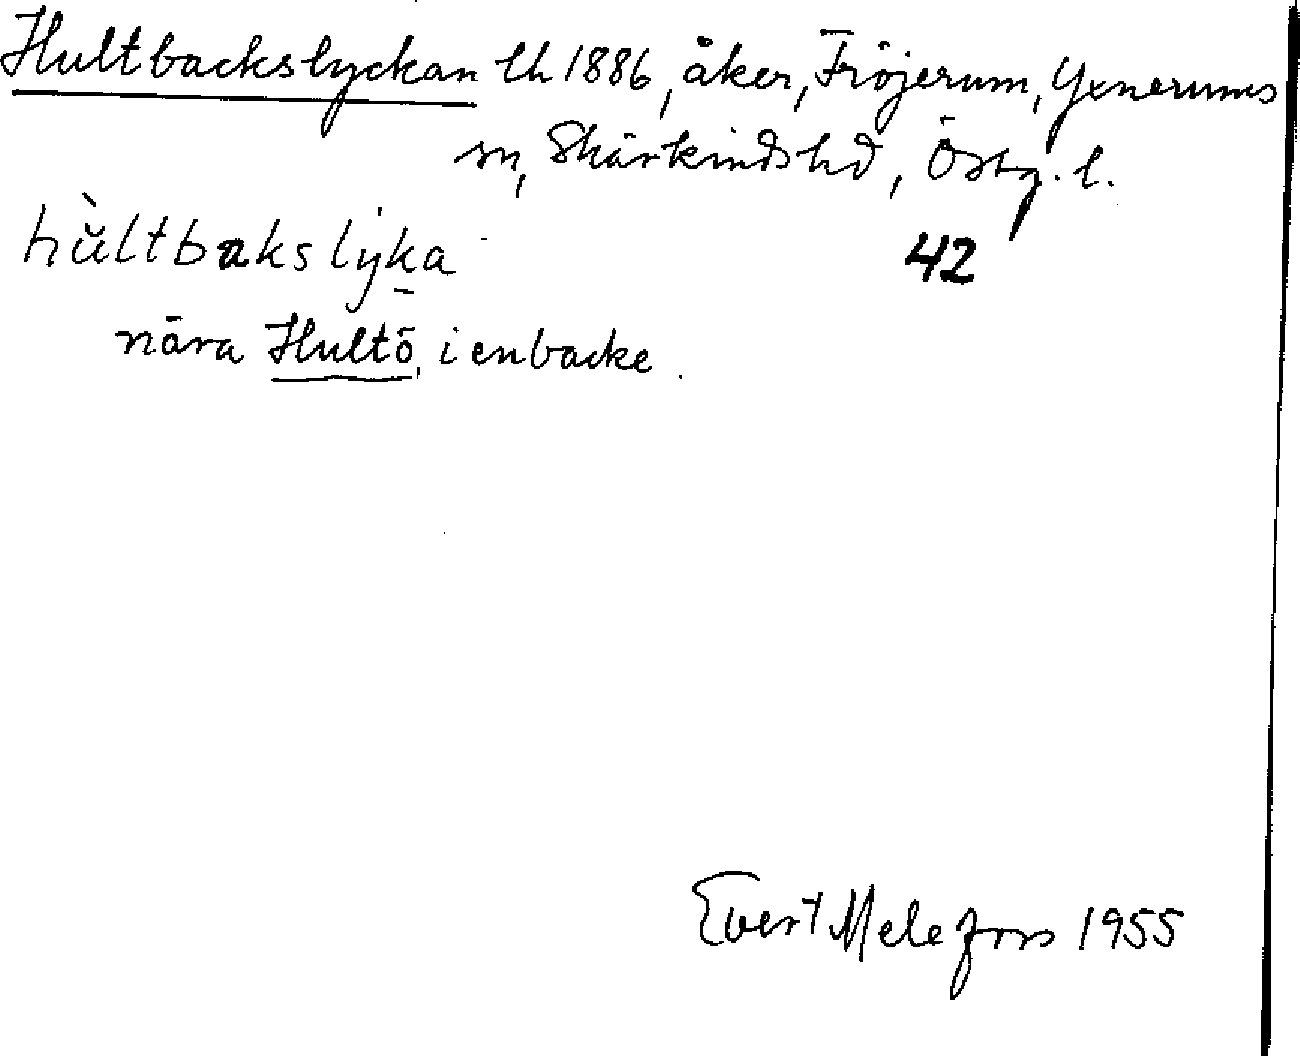 Hultbackslyckan lh 1886, åker, Fröjerum, Yxnerums
sn, Skärkinds hd, Östg. l.
hùltbakslyka
42
nära Hultö, i en backe.
Evert Melefors 1955